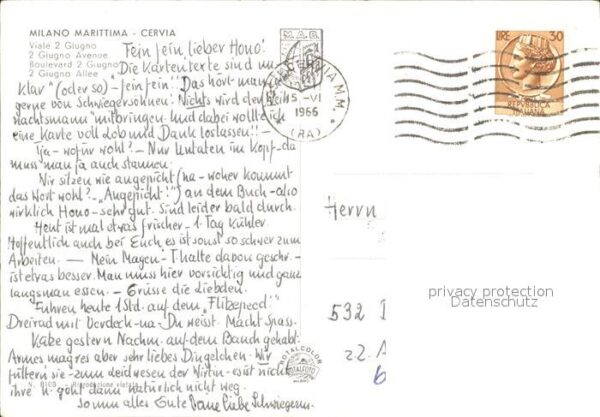 MILANO MARITTIMA - CERVIA
Viale 2 Giugno
2 Giugno Avenue
Boulevard 2 Giugno
2 Giugno Allee
Fein fein, lieber Hono!
Die Kartentexte sind nu
klar "(oder so) - "fein fein" Das hört man
gerne von Schwiegersöhnen. Nichts wird der "Weih
nachtsmann" mitbringen. Und dabei wollte ich
eine Karte voll Lob und Dank loslassen!!
Tja - wofür wohl? - Nur Untaten im Kopf - da
muss man ja auch staunen.
Wir sitzen wie angepicht (na - woher kommt
das Wort wohl? - "Angepicht!") an dem Buch - also
wirklich Hono - sehr gut. Sind leider bald durch.
Heut ist mal etwas frischer - 1 Tag kühler.
Hoffentlich auch bei Euch, es ist sonst so schwer zum
Arbeiten. — Mein Magen - I hatte davon geschr. -
ist etwas besser. Man muss hier vorsichtig und ganz
langsam essen. - Grüsse die Liebden.
Fuhren heute 1 Std. auf dem "Flizepeed"
Dreirad mit Verdeck - na - Du weisst. Macht Spass.
Katze gestern Nachm. auf dem Bauch gehabt.
Armes magres aber sehr liebes Dingelchen. Wir
füttern sie - zum Leidwesen der Wirtin - es ist nicht
ihre u. geht dann natürlich nicht weg.
So nun alles Gute Deine liebe Schwiegerm.
M.A.B.
15 -VI
1966
(RA)
LIRE 30
REPUBBLICA
ITALIANA
Herrn
532
22
6
privacy protection
Datenschutz
ROTALCOLOR
ROTALFOTO
MILANO
Riproduzione vietata